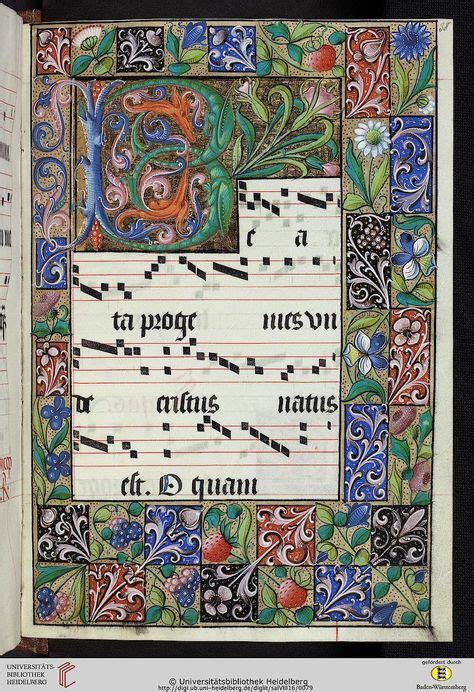 © Universitätsbibliothek Heidelberg
B
e a
ta proge nies vn
de cristus natus
est. O quam
UNIVERSITÄTS-
BIBLIOTHEK
HEIDELBERG
© Universitätsbibliothek Heidelberg
http://digi.ub.uni-heidelberg.de/diglit/salVIII16/0079
gefördert durch
Baden-Württemberg